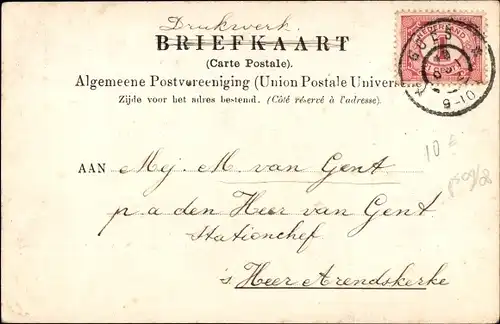 Drukwerk
BRIEFKAART
(Carte Postale).
Algemeene Postvereeniging (Union Postale Univers
Zijde voor het adres bestemd. (Côté réservé à l'adresse).
NEDERLAND
GOES
9-10
10
AAN Mej. M. van Gent
p. a den Heer van Gent
Stationchef
's Heer Arendskerke